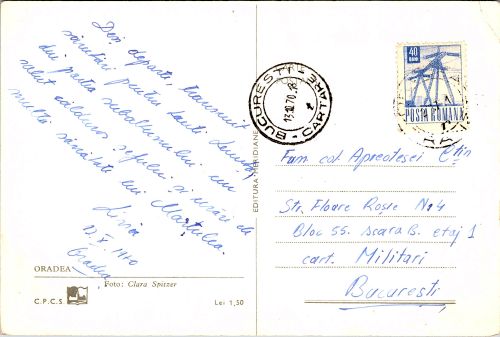 Deși departe, transmit
salutări pentru toată
din partea subalternului cu
salut călduros șefului și urări de
multă sănătate lui
Livia
Oradea
ORADEA
Foto: Clara Spitzer
C.P.C.S
Lei 1,50
EDITURA MERIDIANE
BUCUREȘTI
CARTARE
40
BANI
POSTA ROMANA
Fam col. Apreotesei Ctin
Str. Floare Roșie N4
Bloc 55. scara B. etaj 1
cart. Militari
București